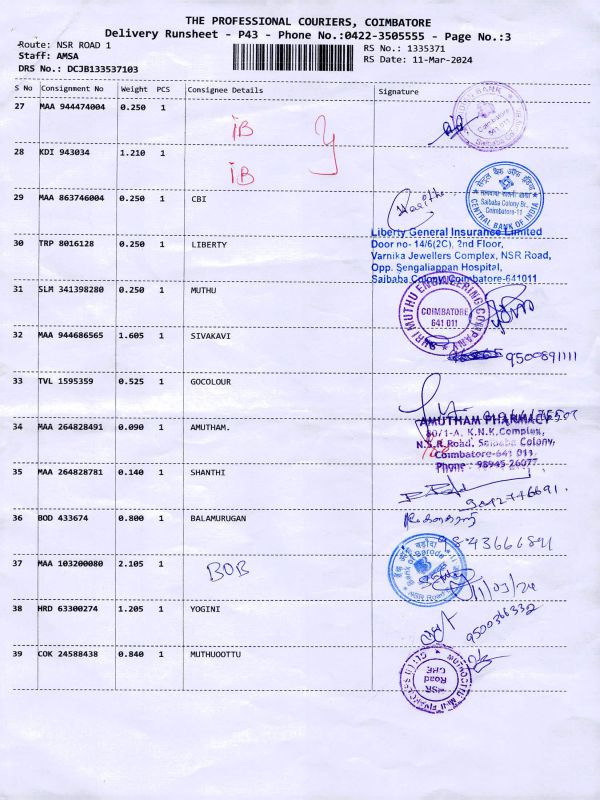 THE PROFESSIONAL COURIERS, COIMBATORE
Delivery Runsheet - P43 - Phone No.:0422-3505555 - Page No.:3
Route: NSR ROAD 1
RS No.: 1335371
Staff: AMSA
RS Date: 11-Mar-2024
DRS No.: DCJB133537103
S No Consignment No Weight PCS Consignee Details Signature
27 MAA 944474004 0.250 1
iB
Coimbatore
28 KDI 943034 1.210 1
iB
29 MAA 863746004 0.250 1 CBI
Saibaba Colony Br.,
Coimbatore-11
CENTRAL BANK OF INDIA
30 TRP 8016128 0.250 1 LIBERTY
Liberty General Insurance Limited
Door no- 14/6(2C), 2nd Floor,
Varnika Jewellers Complex, NSR Road,
Opp. Sengaliappan Hospital,
Saibaba Colony, Coimbatore-641011
31 SLM 341398280 0.250 1 MUTHU
SHRI MUTHU ENGINEERING COMPANY
COIMBATORE
641 011
32 MAA 944686565 1.605 1 SIVAKAVI
9500891111
33 TVL 1595359 0.525 1 GOCOLOUR
34 MAA 264828491 0.090 1 AMUTHAM.
AMUTHAM PHARMACY
80/1-A, K.N.K.Complex,
N.S.R.Road, Saibaba Colony,
Coimbatore-641 011.
Phone : 98945 26077
35 MAA 264828781 0.140 1 SHANTHI
36 BOD 433674 0.800 1 BALAMURUGAN
37 MAA 103200080 2.105 1
BOB
Bank of Baroda
NSR Road
11/03/24
38 HRD 63300274 1.205 1 YOGINI
9500366332
39 COK 24588438 0.840 1 MUTHUOOTTU
NSR
Road
CBE